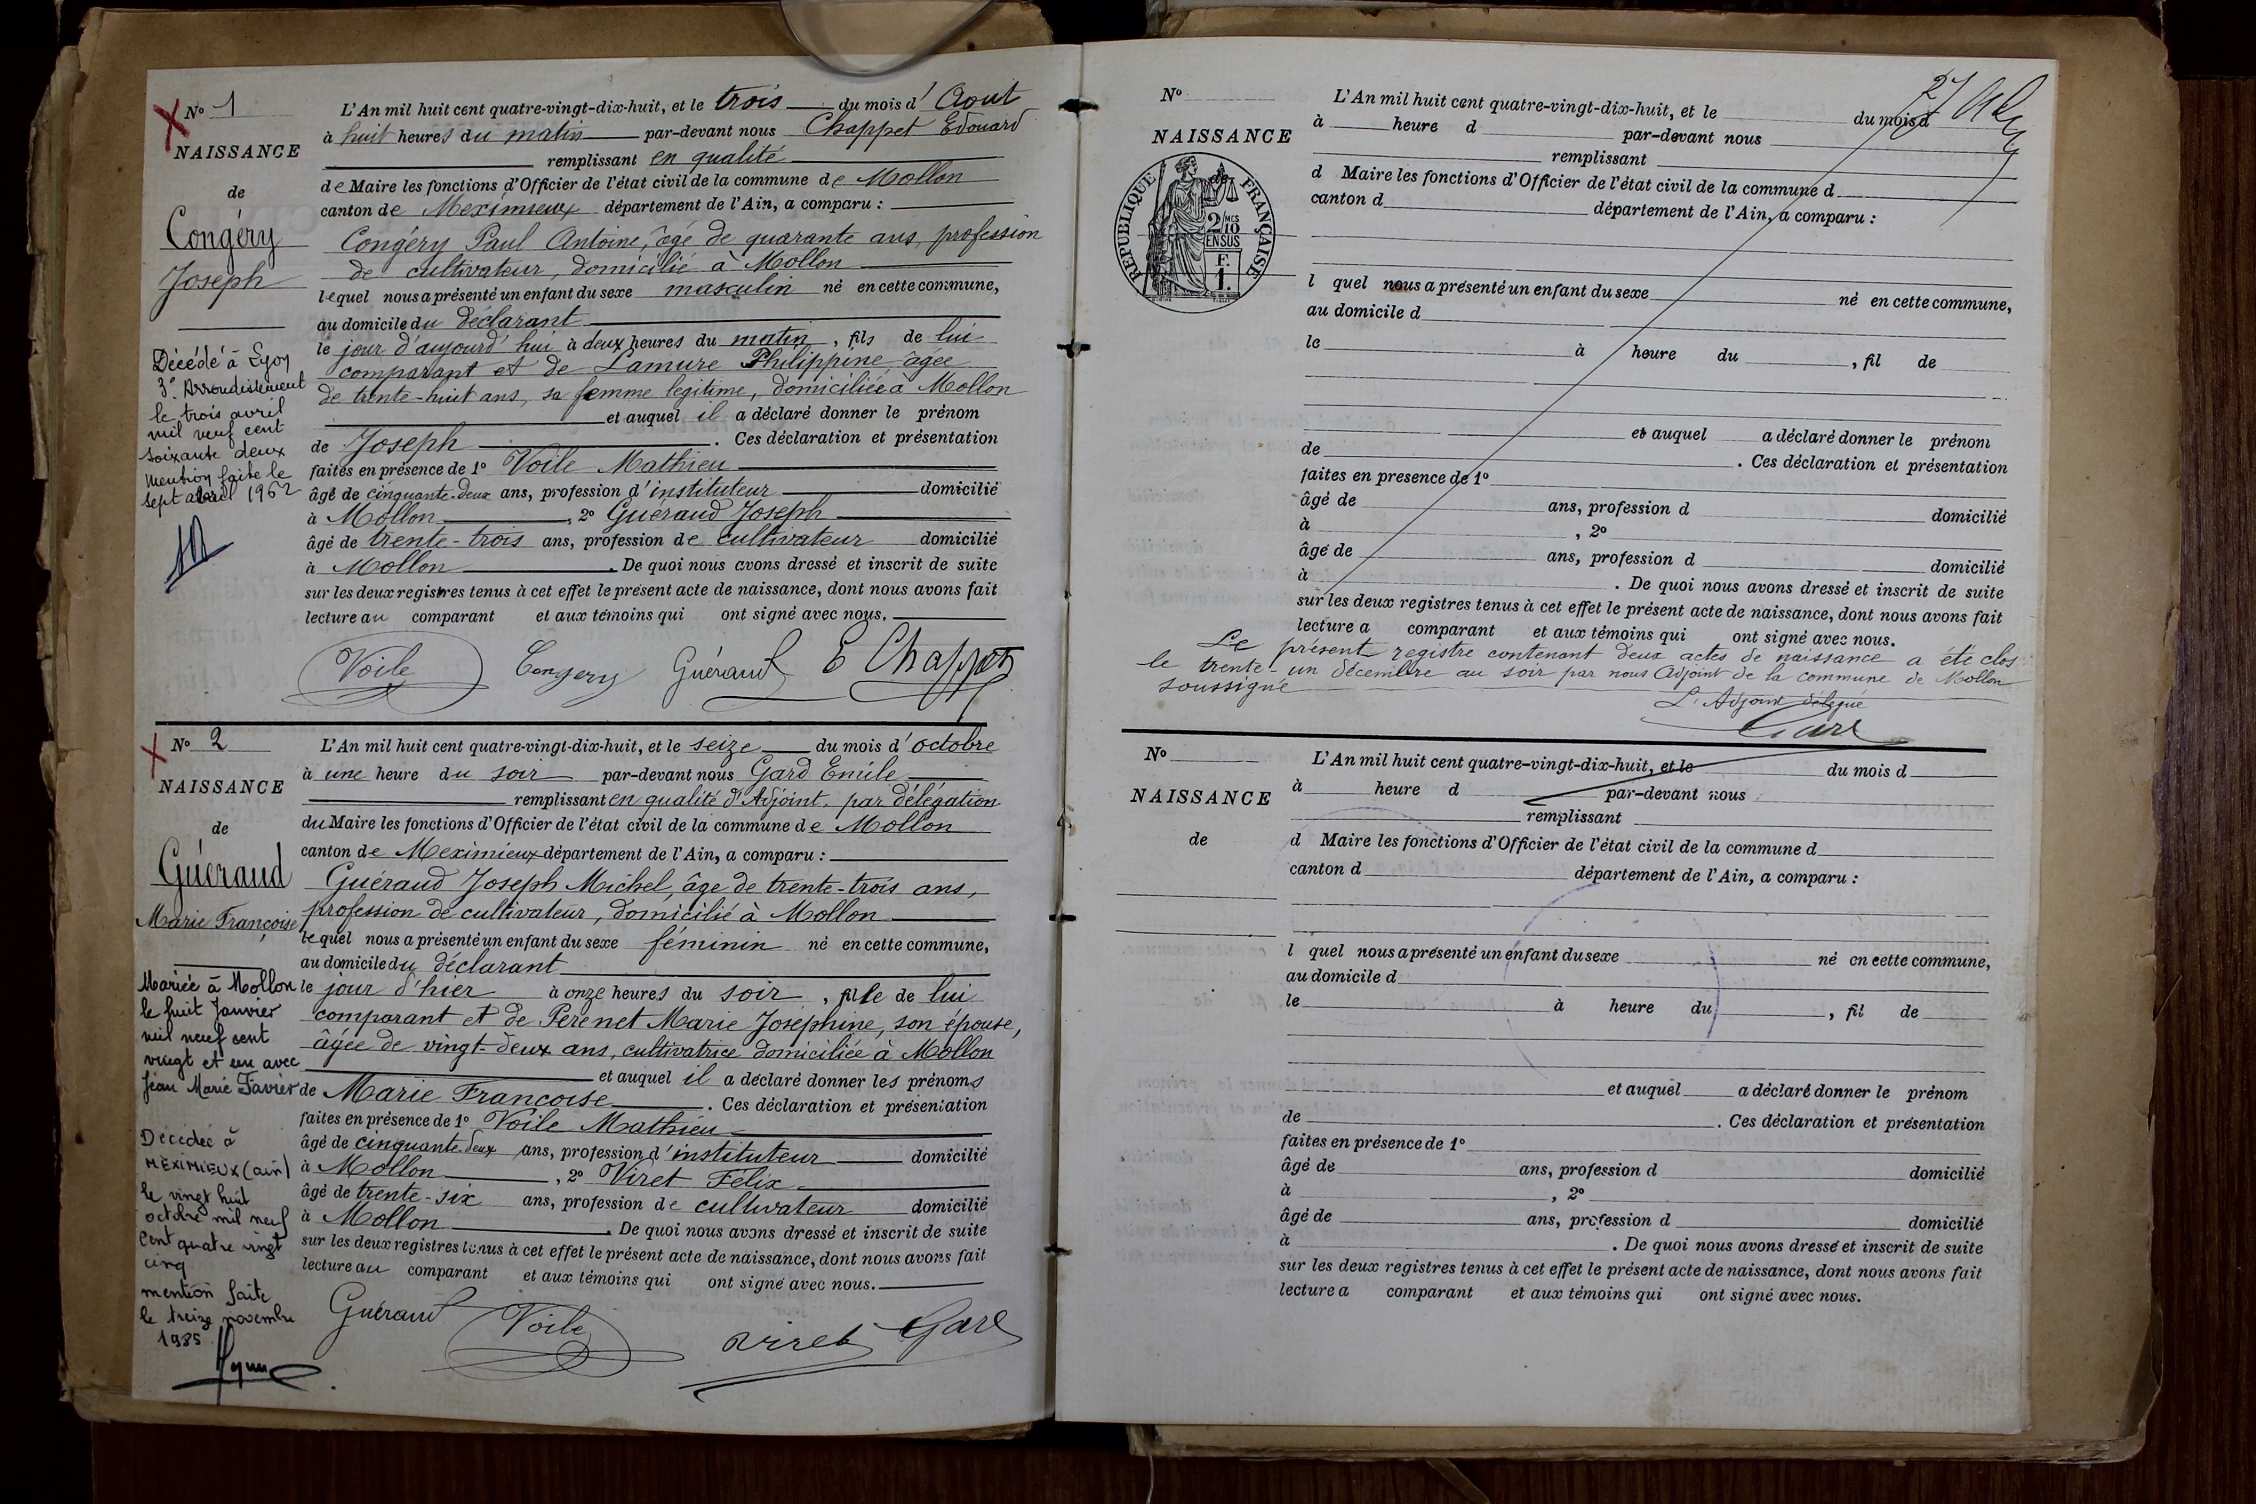 N° 1
NAISSANCE
de
Congéry
Joseph
Décédé à Lyon
3e Arrondissement
le trois avril
mil neuf cent
soixante deux
Mention faite le
sept avril 1962
L'An mil huit cent quatre-vingt-dix-huit, et le trois du mois d'Août
à huit heures du matin par-devant nous Chappet Edouard
remplissant en qualité
de Maire les fonctions d'Officier de l'état civil de la commune de Mollon
canton de Meximieux département de l'Ain, a comparu :
Congéry Paul Antoine, âgé de quarante ans, profession
de cultivateur, domicilié à Mollon
lequel nous a présenté un enfant du sexe masculin né en cette commune,
au domicile du déclarant
le jour d'aujourd'hui à deux heures du matin, fils de lui
comparant et de Lamure Philippine âgée
de trente-huit ans, sa femme légitime, domiciliée à Mollon
et auquel il a déclaré donner le prénom
de Joseph. Ces déclaration et présentation
faites en présence de 1° Voile Mathieu
âgé de cinquante-deux ans, profession d'instituteur domicilié
à Mollon, 2° Guéraud Joseph
âgé de trente-trois ans, profession de cultivateur domicilié
à Mollon. De quoi nous avons dressé et inscrit de suite
sur les deux registres tenus à cet effet le présent acte de naissance, dont nous avons fait
lecture au comparant et aux témoins qui ont signé avec nous.
Voile Congery Guéraud E Chappet
N° 2
NAISSANCE
de
Guéraud
Marie Françoise
Mariée à Mollon
le huit Janvier
mil neuf cent
vingt et un avec
Jean Marie Favier
Décédée à
MEXIMIEUX (ain)
le vingt huit
octobre mil neuf
cent quatre vingt
cinq
mention faite
le treize novembre
1985
L'An mil huit cent quatre-vingt-dix-huit, et le seize du mois d'octobre
à une heure du soir par-devant nous Gard Emile
remplissant en qualité d'Adjoint, par délégation
du Maire les fonctions d'Officier de l'état civil de la commune de Mollon
canton de Meximieux département de l'Ain, a comparu :
Guéraud Joseph Michel, âgé de trente-trois ans,
profession de cultivateur, domicilié à Mollon
lequel nous a présenté un enfant du sexe féminin né en cette commune,
au domicile du déclarant
le jour d'hier à onze heures du soir, fille de lui
comparant et de Perenet Marie Joséphine, son épouse,
âgée de vingt-deux ans, cultivatrice domiciliée à Mollon
et auquel il a déclaré donner les prénoms
de Marie Françoise. Ces déclaration et présentation
faites en présence de 1° Voile Mathieu
âgé de cinquante-deux ans, profession d'instituteur domicilié
à Mollon, 2° Viret Félix
âgé de trente-six ans, profession de cultivateur domicilié
à Mollon. De quoi nous avons dressé et inscrit de suite
sur les deux registres tenus à cet effet le présent acte de naissance, dont nous avons fait
lecture au comparant et aux témoins qui ont signé avec nous.
Guéraud Voile Viret Gard
N°
NAISSANCE
de
RÉPUBLIQUE FRANÇAISE
2/10 MES
EN SUS
F.
1.
L'An mil huit cent quatre-vingt-dix-huit, et le du mois d
à heure d par-devant nous
remplissant
d Maire les fonctions d'Officier de l'état civil de la commune d
canton d département de l'Ain, a comparu :
l quel nous a présenté un enfant du sexe né en cette commune,
au domicile d
le à heure du , fil de
et auquel a déclaré donner le prénom
de . Ces déclaration et présentation
faites en presence de 1°
âgé de ans, profession d domicilié
à , 2°
âgé de ans, profession d domicilié
à . De quoi nous avons dressé et inscrit de suite
sur les deux registres tenus à cet effet le présent acte de naissance, dont nous avons fait
lecture a comparant et aux témoins qui ont signé avec nous.
Le présent registre contenant deux actes de naissance a été clos
le trente-un décembre au soir par nous Adjoint de la commune de Mollon
soussigné
L'Adjoint délégué
Gard
N°
NAISSANCE
de
L'An mil huit cent quatre-vingt-dix-huit, et le du mois d
à heure d par-devant nous
remplissant
d Maire les fonctions d'Officier de l'état civil de la commune d
canton d département de l'Ain, a comparu :
l quel nous a présenté un enfant du sexe né en cette commune,
au domicile d
le à heure du , fil de
et auquel a déclaré donner le prénom
de . Ces déclaration et présentation
faites en présence de 1°
âgé de ans, profession d domicilié
à , 2°
âgé de ans, profession d domicilié
à . De quoi nous avons dressé et inscrit de suite
sur les deux registres tenus à cet effet le présent acte de naissance, dont nous avons fait
lecture a comparant et aux témoins qui ont signé avec nous.